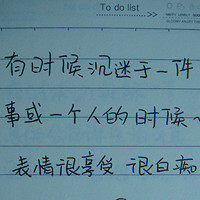 To do list
有时候沉迷于一件
事或一个人的时候~
表情很享受 很白痴